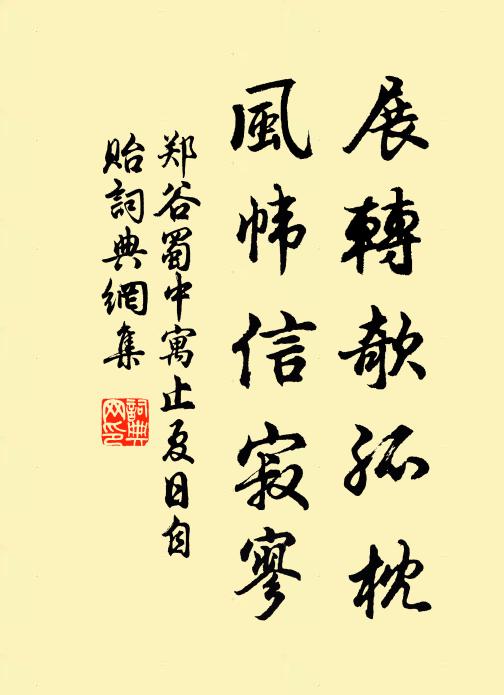 展轉欹孤枕
風幃信寂寥
郑谷蜀中寓止夏日自
贻詞典網集
詞典
网印